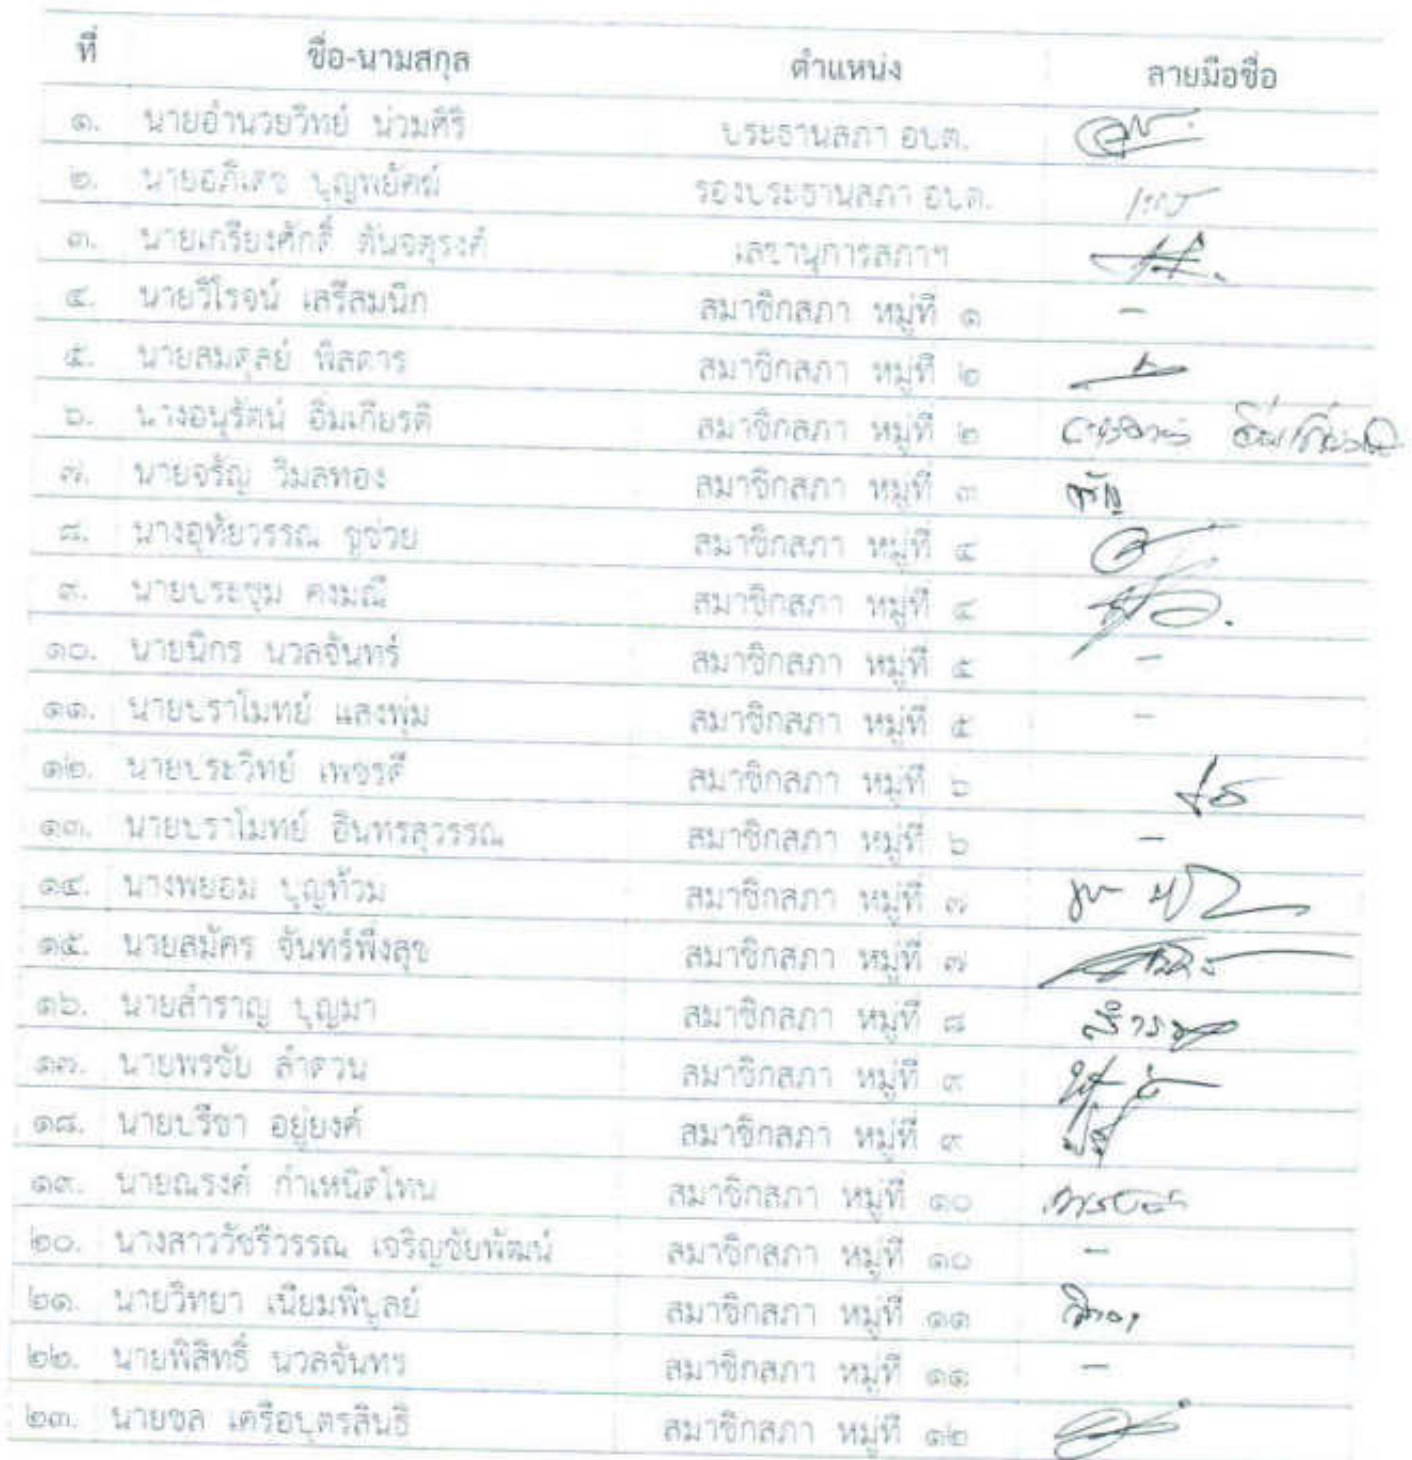 ที่ ชื่อ-นามสกุล ตำแหน่ง ลายมือชื่อ
๑. นายอำนวยวิทย์ น่วมศิริ ประธานสภา อบต.
๒. นายอภิเดช บุญพยัคฆ์ รองประธานสภา อบต.
๓. นายเกรียงศักดิ์ ตันจตุรงค์ เลขานุการสภาฯ
๔. นายวิโรจน์ เสรีสมนึก สมาชิกสภา หมู่ที่ ๑ -
๕. นายสมดุลย์ พิสดาร สมาชิกสภา หมู่ที่ ๒
๖. นางอนุรัตน์ อิ่มเกียรติ สมาชิกสภา หมู่ที่ ๒
๗. นายจรัญ วิมลทอง สมาชิกสภา หมู่ที่ ๓ จรัญ
๘. นางอุทัยวรรณ ชูช่วย สมาชิกสภา หมู่ที่ ๔
๙. นายประชุม คงมณี สมาชิกสภา หมู่ที่ ๔
๑๐. นายนิกร นวลจันทร์ สมาชิกสภา หมู่ที่ ๕ -
๑๑. นายปราโมทย์ แสงพุ่ม สมาชิกสภา หมู่ที่ ๕ -
๑๒. นายประวิทย์ เพชรดี สมาชิกสภา หมู่ที่ ๖
๑๓. นายปราโมทย์ อินทรสุวรรณ สมาชิกสภา หมู่ที่ ๖ -
๑๔. นางพยอม บุญท้วม สมาชิกสภา หมู่ที่ ๗
๑๕. นายสมัคร จันทร์พึ่งสุข สมาชิกสภา หมู่ที่ ๗
๑๖. นายสำราญ บุญมา สมาชิกสภา หมู่ที่ ๘ สำราญ
๑๗. นายพรชัย ลำดวน สมาชิกสภา หมู่ที่ ๙
๑๘. นายปรีชา อยู่ยงค์ สมาชิกสภา หมู่ที่ ๙
๑๙. นายณรงค์ กำเหนิดโทน สมาชิกสภา หมู่ที่ ๑๐
๒๐. นางสาววัชรีวรรณ เจริญชัยพัฒน์ สมาชิกสภา หมู่ที่ ๑๐ -
๒๑. นายวิทยา เนียมพิบูลย์ สมาชิกสภา หมู่ที่ ๑๑
๒๒. นายพิสิทธิ์ นวลจันทร สมาชิกสภา หมู่ที่ ๑๑ -
๒๓. นายชล เครือบุตรสินธิ์ สมาชิกสภา หมู่ที่ ๑๒